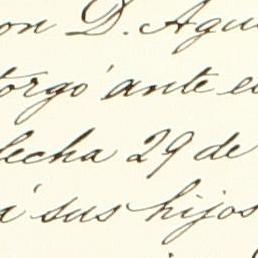 on D. Agu
torgó ante e
fecha 29 de
á sus hijos